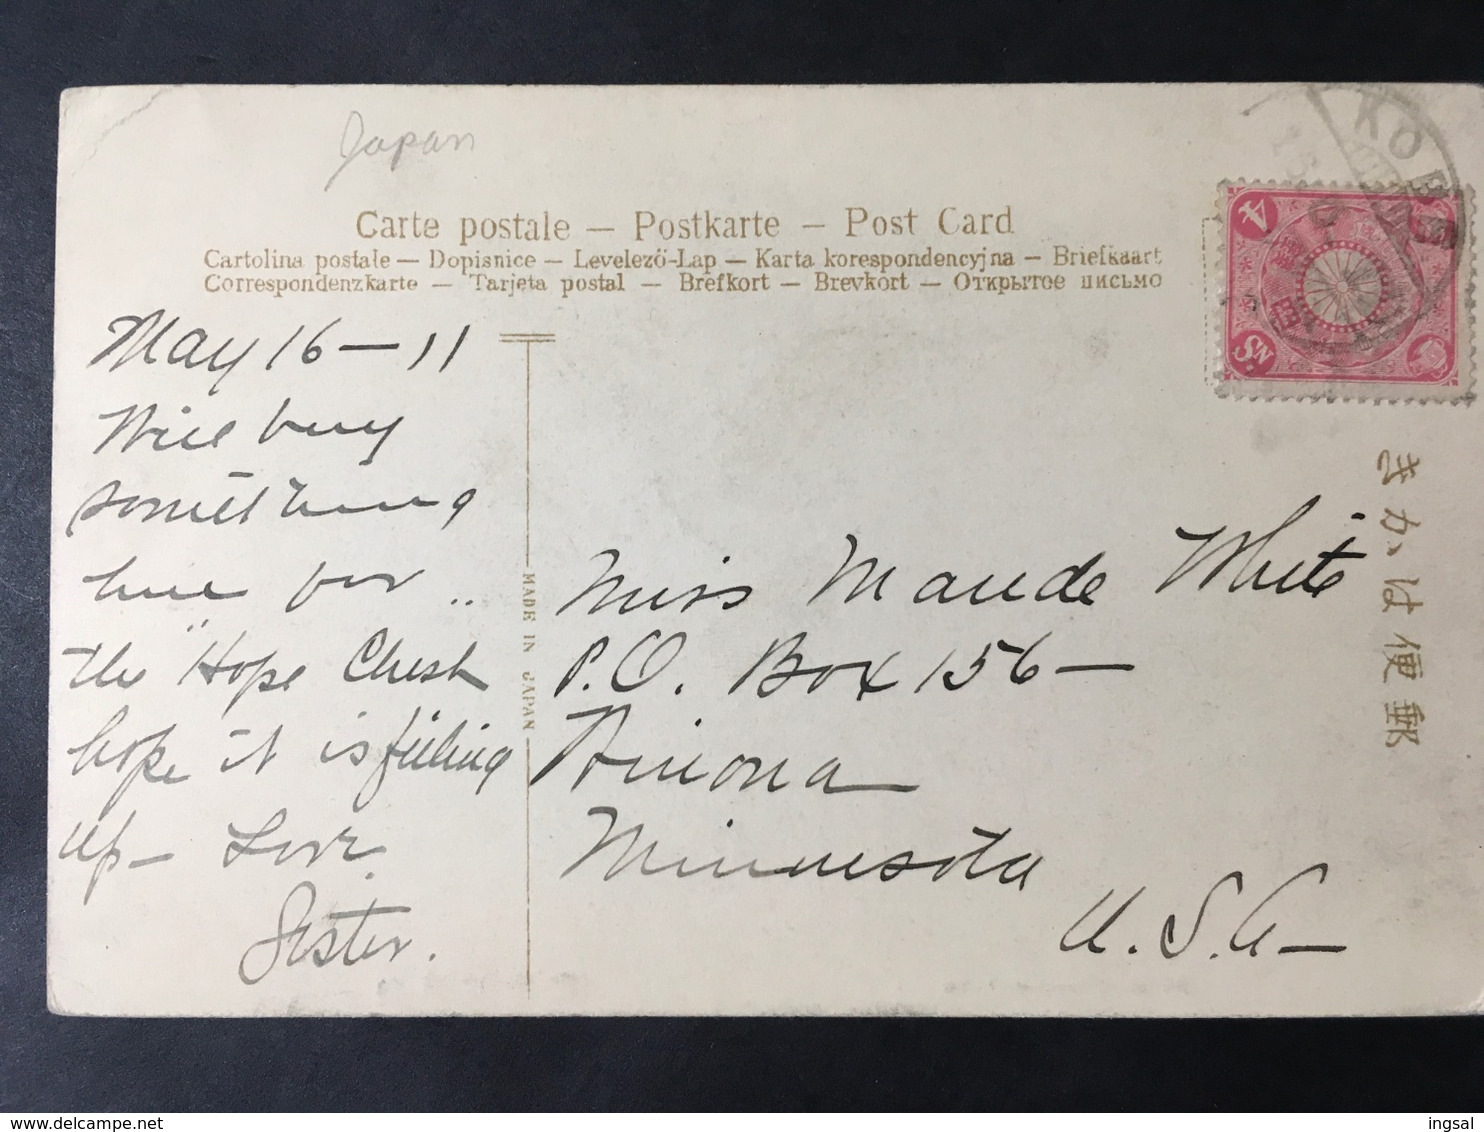 Japan
KOBE
Carte postale — Postkarte — Post Card
Cartolina postale — Dopisnice — Levelező-Lap — Karta korespondencyjna — Briefkaart
Correspondenzkarte — Tarjeta postal — Brefkort — Brevkort — Открытое письмо
4
SN
きかは便郵
May 16 — 11
Will buy
something
here for
the "Hope Chest
hope it is filling
up — Love.
Sister.
MADE IN JAPAN
Miss Maude White
P.O. Box 156 —
Minnesota
U.S.A —
www.delcampe.net
ingsal